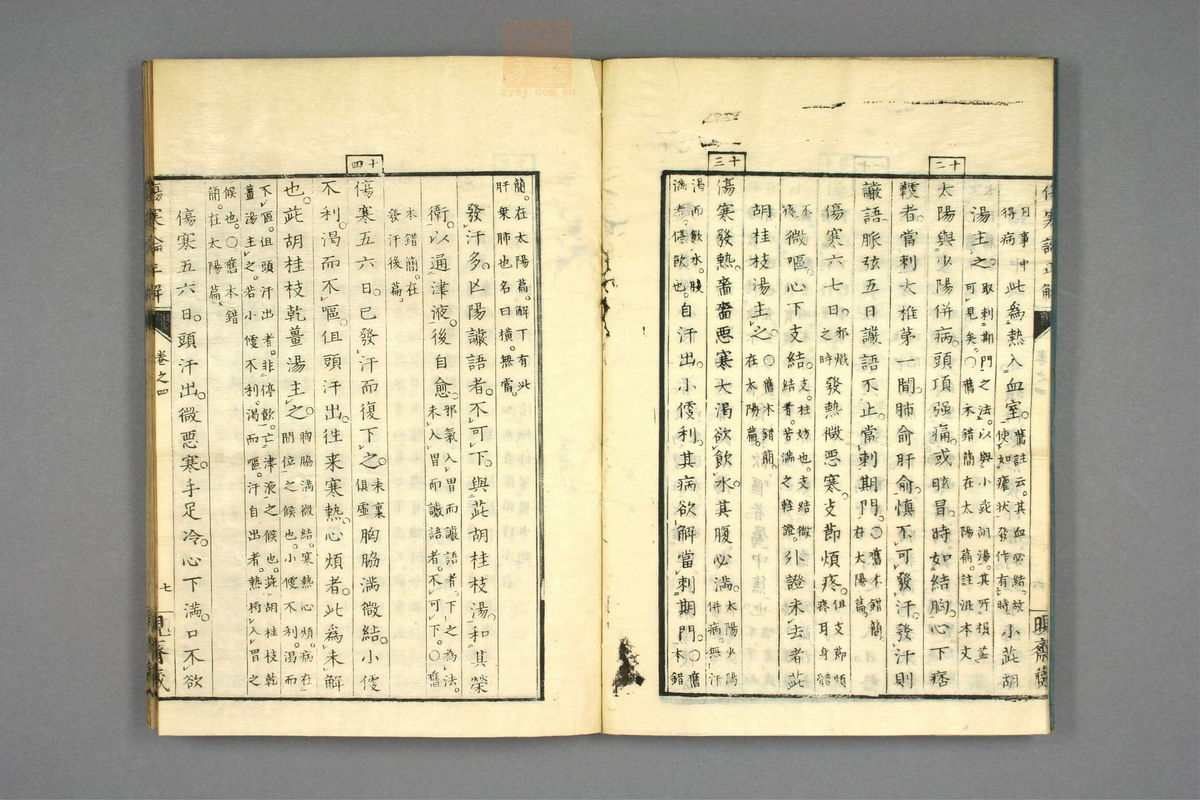 月事中得病此為熱入血室舊註云其血必結故使如瘧狀發作有時小茈胡
湯主之取刺期門之法以與小茈湖湯其所損益可見矣○舊本錯簡在太陽篇註混本文
太陽與少陽併病頭項强痛或眩冒時如結胸心下痞
鞕者當刺大椎第一間肺俞肝俞慎不可發汗發汗則
讝語脈弦五日讝語不止當刺期門○舊本錯簡在太陽篇
傷寒六七日邪熾之時發熱微惡寒支節煩疼但支節煩疼耳身體不
疼微嘔心下支結支柱妨也支結微結者苦滿之輕證外證未去者茈
胡桂枝湯主之○舊本錯簡在太陽篇
傷寒發熱嗇嗇惡寒大渴欲飲水其腹必滿太陽少陽併病無汗
渴而飲水腹滿者停飲也自汗出小便利其病欲解當刺期門○舊本錯
簡在太陽篇解下有此肝乗肺也名曰橫無當
發汗多亡陽讝語者不可下與茈胡桂枝湯和其榮
衛以通津液後自愈邪氣入胃而讝語者下之為法未入胃而讝語者不可下○舊
本錯簡在發汗後篇
傷寒五六日已發汗而復下之未裏俱虛胸脇滿微結小便
不利渴而不嘔但頭汗出徃来寒熱心煩者此為未解
也茈胡桂枝乾薑湯主之胸脇滿微結寒熱心煩病在間位之候也小便不利渴而
不嘔但頭汗出者非停飲亡津液之候也茈胡桂枝乾薑湯主之若小便不利渴而嘔汗自出者熱將入胃之
候也○舊本錯簡在太陽篇
傷寒五六日頭汗出微惡寒手足冷心下滿口不欲
十二
十三
十四
卷之四
七